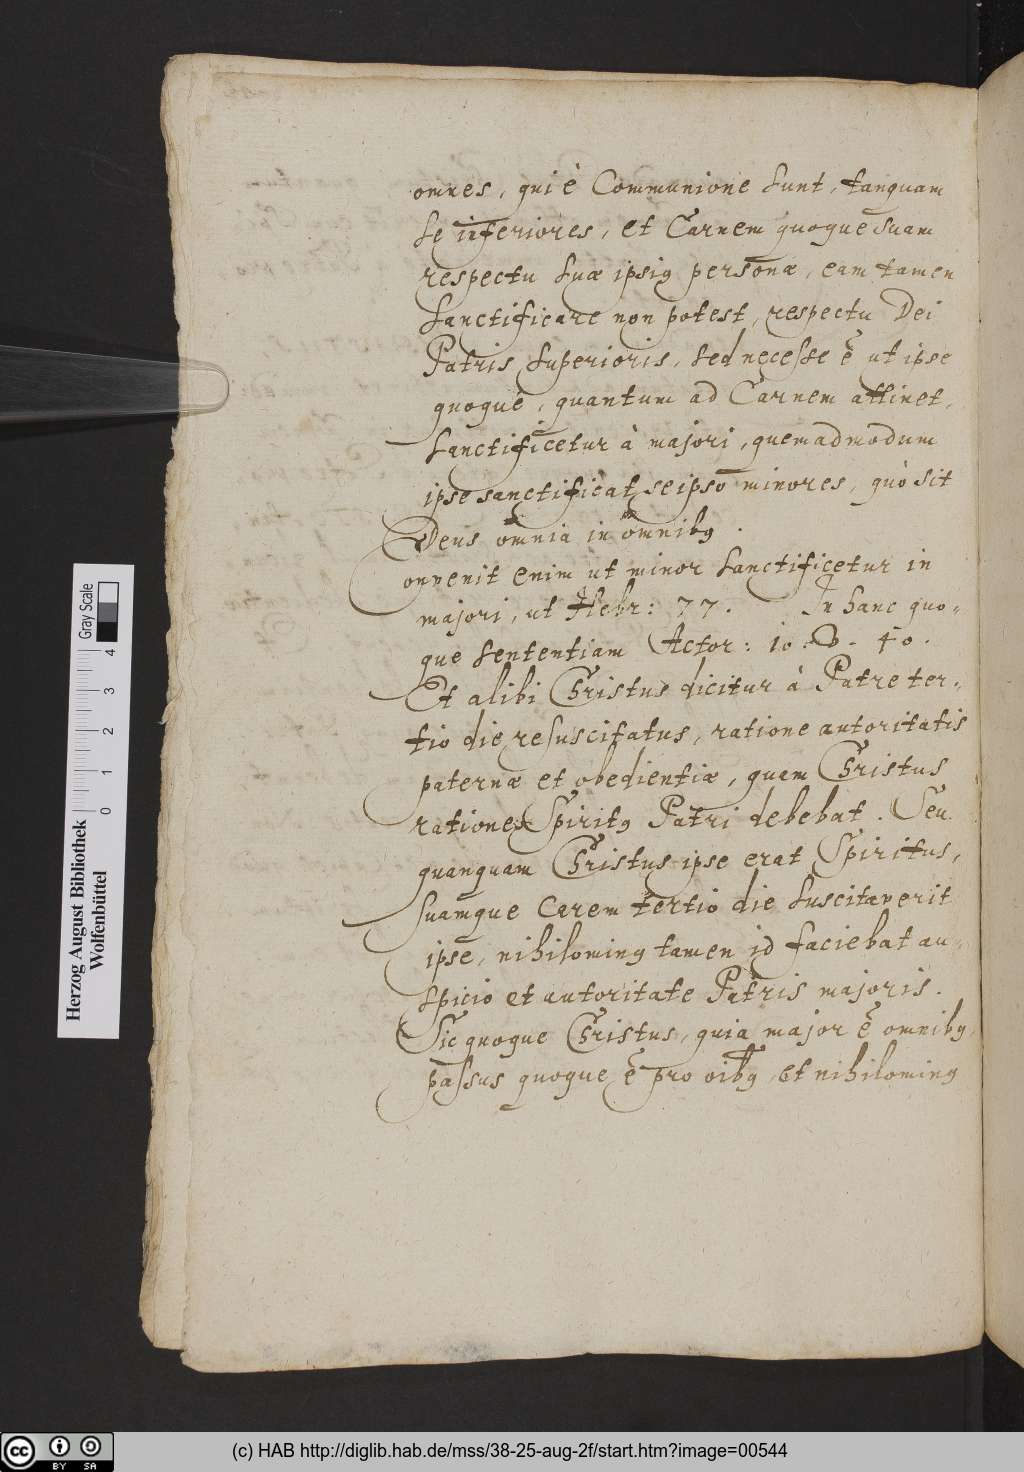 omnes, qui è Communione sunt, tanquam
se inferiores, et Carnem quoque suam
respectu suæ ipsiꝰ personæ, eam tamen
sanctificare non potest, respectu Dei
Patris superioris, sed necesse ẽ ut ipse
quoque, quantum ad Carnem attinet,
sanctificetur à majori, quemadmodum
ipse sanctificat se ipso minores, quò sit
Deus omnia in omnibꝰ.
onvenit enim ut minor sanctificetur in
majori, ut Hebr: 77. In hanc quo-
que sententiam Actor: 10. v. 40.
Et alibi Christus dicitur à Patre ter-
tio die resuscitatus, ratione autoritatis
paternæ et obedientiæ, quam Christus
ratione Spiritꝰ Patri debebat. Seu
quanquam Christus ipse erat Spiritus,
suamque Carem tertio die suscitaverit
ipse, nihilominꝰ tamen id faciebat au-
spicio et autoritate Patris majoris.
Sic quoque Christus, quia major ẽ omnibꝰ,
passus quoque ẽ pro oibꝰ, et nihilominꝰ
Herzog August Bibliothek
Wolfenbüttel
Gray Scale
0 1 2 3 4
cc BY SA
(c) HAB http://diglib.hab.de/mss/38-25-aug-2f/start.htm?image=00544